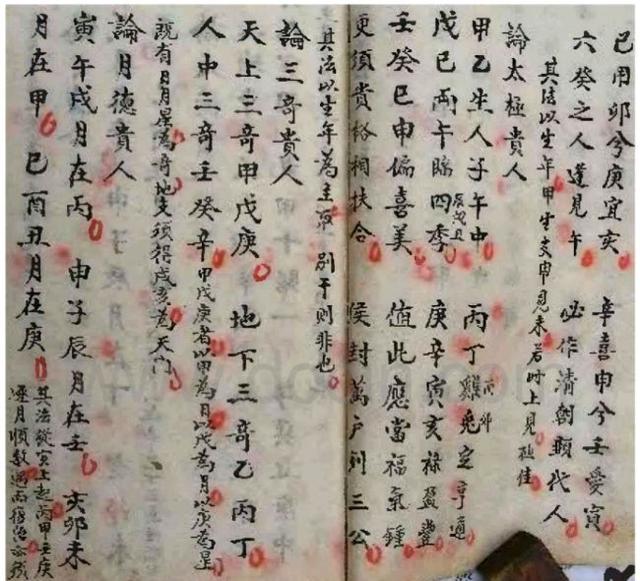 己用卯兮庚宜亥　辛喜申兮壬愛寅
六癸之人逢見午　必作清朝顕代人
其法以生年甲生支申見未若時上見極佳
論太極貴人
甲乙生人子午中　丙丁雞兔定亨通
酉卯
戊己兩午臨四季　庚辛寅亥祿盈豐
辰戌丑
壬癸巳申偏喜美　值此應當福氣鍾
更須貴格相扶合　侯封萬户列三公
其法以生年為主別干則非也
論三奇貴人
天上三奇甲戊庚　地下三奇乙丙丁
人中三奇壬癸辛　甲戊庚者以甲為日以戊為月以庚為星
既有日月星為奇地支須得戌亥為天門
論月德貴人
寅午戌月在丙　申子辰月在壬　亥卯未
月在甲　巳酉丑月在庚
其法從寅上起丙甲壬庚
逐月順數週而復